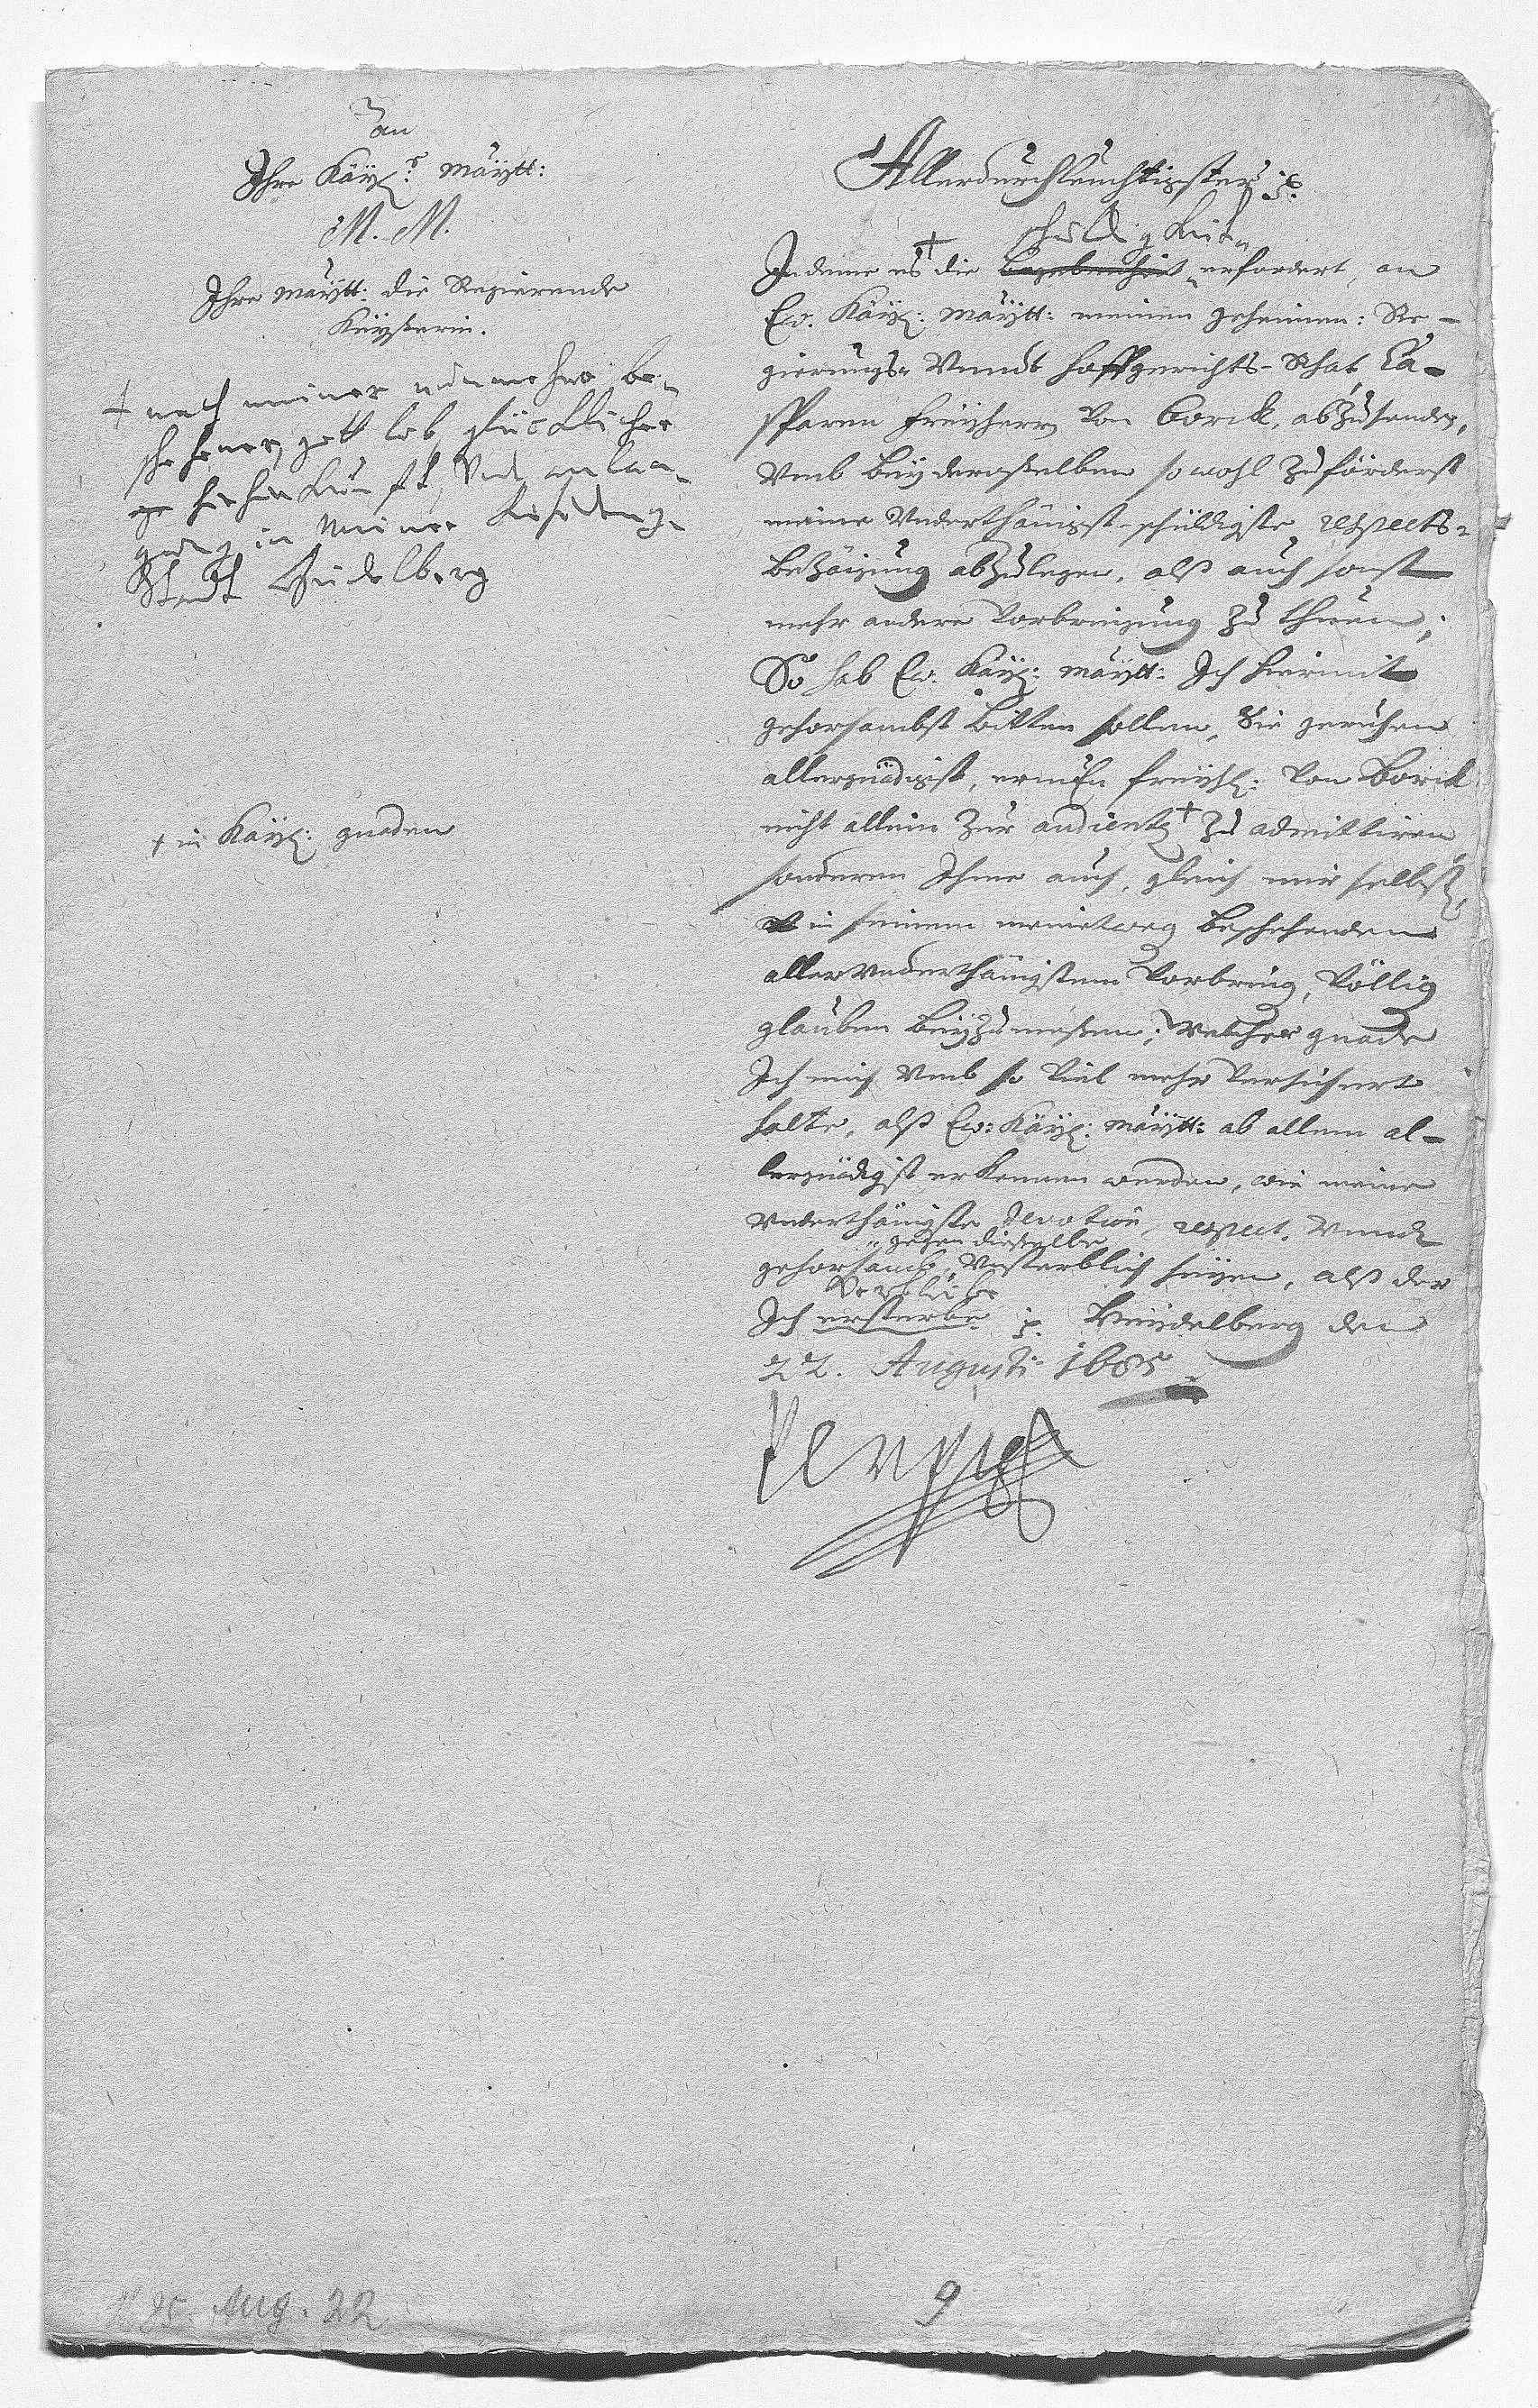 An
Ihre Käyß.r Maÿtt:
M. M.
Ihre Maÿtt: die Regierende
Keyserin.
+ nach meiner nunmehro be-
schehener, gott lob, glücklicher
hiehin kunfft, und anlan-
gung in meiner Residentz-
Statt Heidelberg
+ in Käyß: gnaden
Allerdurchleuchtigster p.
schuldigkeit
Indeme es + die Begebenheit erfordert, an
Ew. Käyß: Maÿtt: meinen geheimen: Re-
gierungs- Vnndt Hoffgerichts-Rhat, Ca-
sparn Freyherrn von Borck, abzusenden,
Vmb Bey deroselben sowohl zuförderst
meine Vnderthänigst-schuldigste respects-
Bezäigung abzulegen, alß auch sonst
mehr andere Vorbringung zu thuen;
So hab Ew. Käyß: Maÿtt: Ich hiermit
gehorsambst bitten sollen, Sie geruhen
allergnädigist, ermelten Freyh: von Borck
nicht allein zur audientz + zu admittiren
sonderen Ihme auch, gleich mir selbst,
in seinem meinetweg Beschehenden
allervnderthänigstem Vorbring, Völlig
glauben Beyzumeßen; Welcher gnade
Ich mich Vmb so Viel mehr Versichert
halte, alß Ew: Käyß: Maÿtt: ab allem al-
lergnädigist erkennen werden, wie meine
Vnderthänigste devotion, respect, Vnndt
gegen dieselbe
gehorsamb, Vnsterblich seyen, alß der
Verbleibe
Ich ersterbe p. Heydelberg den
22. Augusti 1685
1685. Aug. 22
9